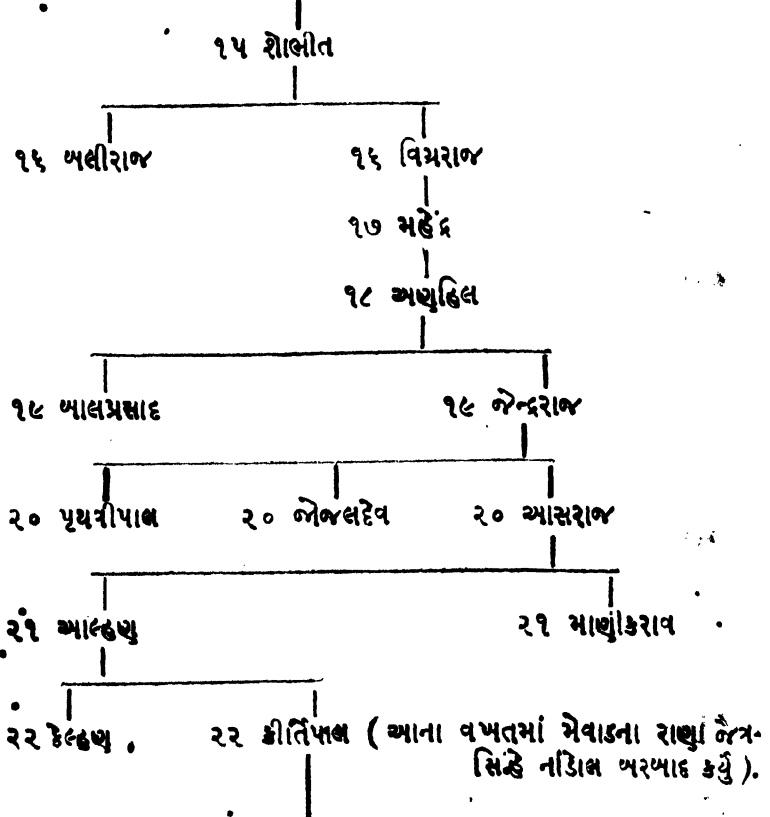 ૧૫ શોભીત
૧૬ બલીરાજ ૧૬ વિગ્રરાજ
૧૭ મહેંદ્ર
૧૮ અણહિલ
૧૯ બાલપ્રસાદ ૧૯ જેન્દ્રરાજ
૨૦ પૃથત્રીપાલ ૨૦ જોજલદેવ ૨૦ આસરાજ
૨૧ આલ્હણ ૨૧ માણીકરાવ
૨૨ કેલ્હણ ૨૨ કીર્તિપાલ ( આના વખતમાં મેવાડના રાણા જૈત્ર-
સિંહે નાડોલ બરબાદ કર્યું ).